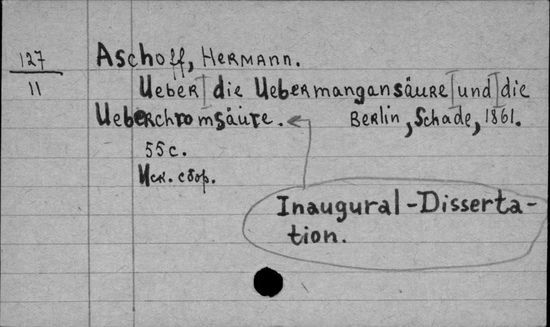 127
11
Aschoff, Hermann.
Ueber die Uebermangansäure und die
Ueberchromsäure. Berlin, Schade, 1861.
55 с.
Иск. сбор.
Inaugural-Disserta-
tion.